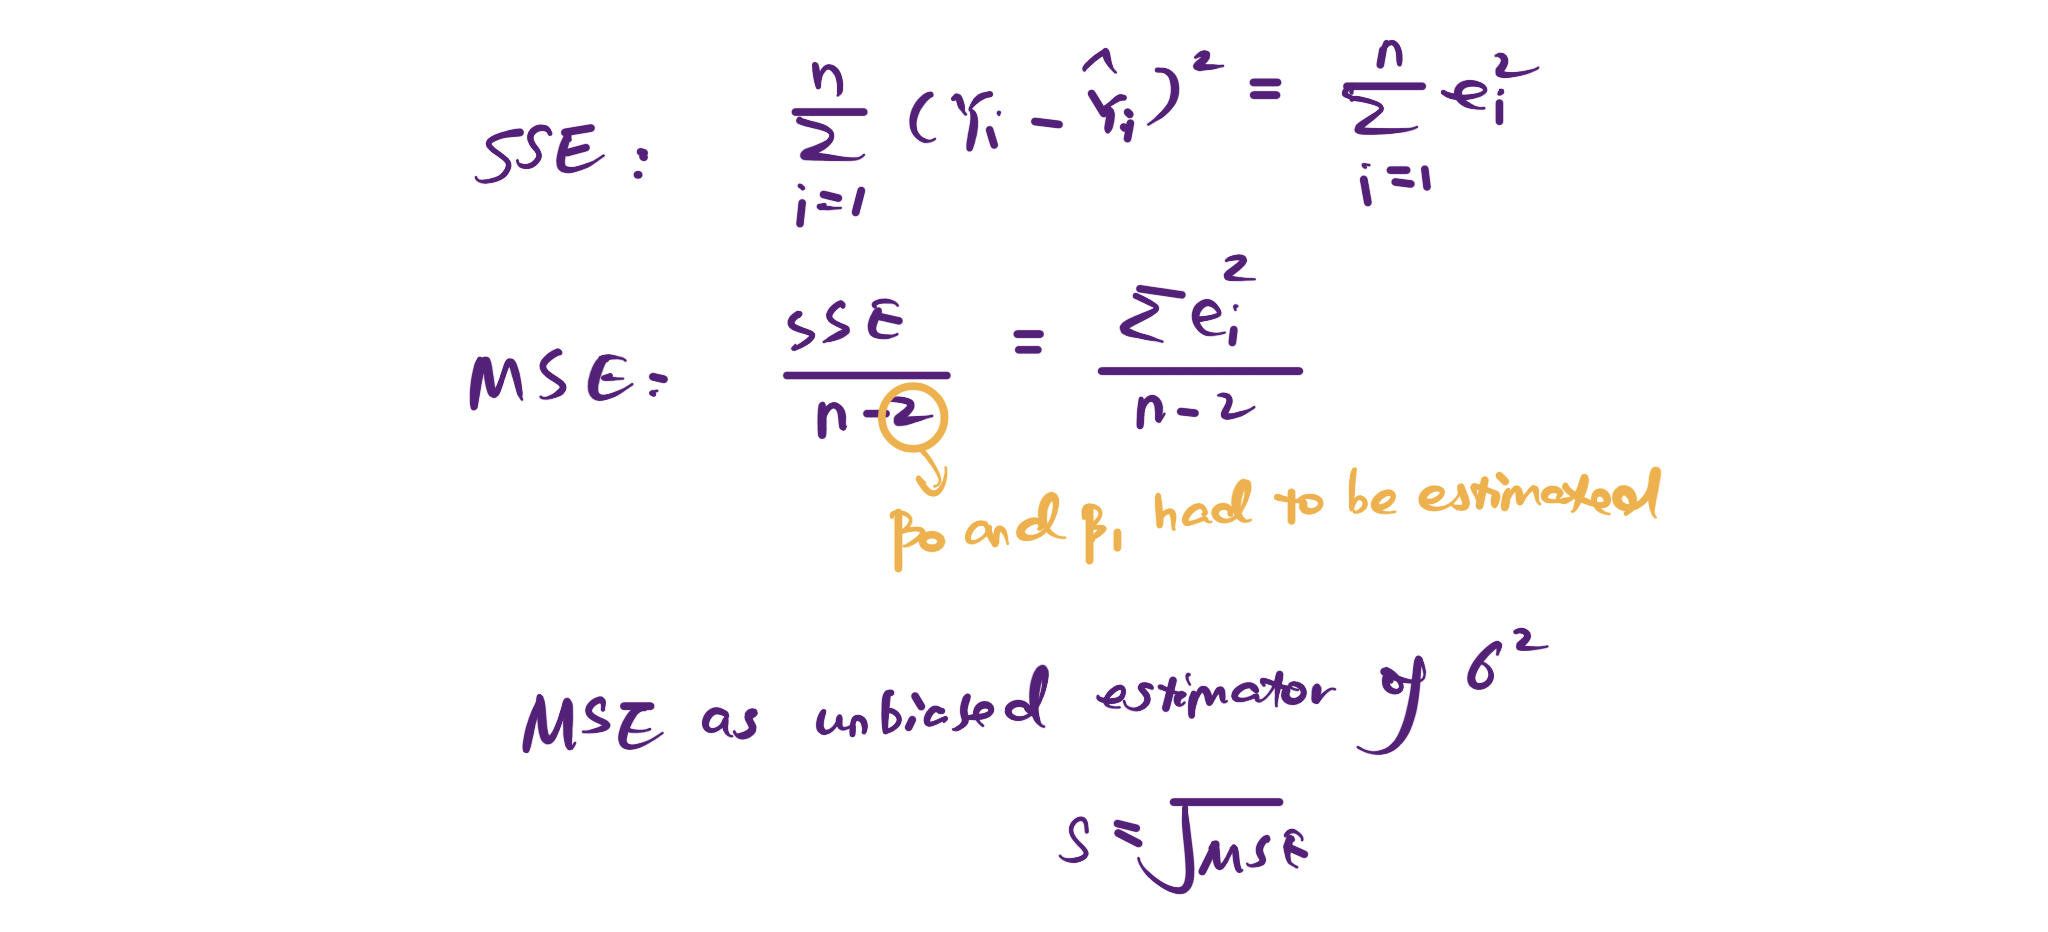 SSE: n∑i=1 (Yi - Ŷi)² = n∑i=1 ei²
MSE: SSE / n-2 = ∑ei² / n-2
β0 and β1 had to be estimated
MSE as unbiased estimator of σ²
S = √MSE